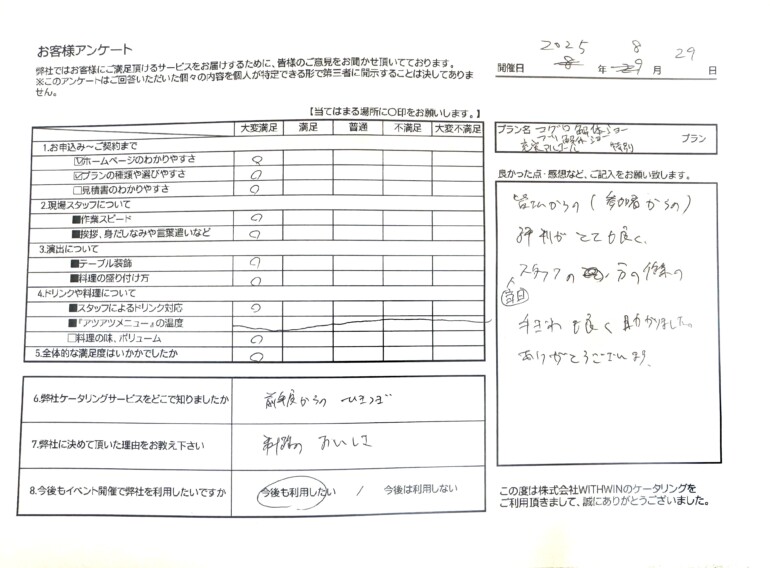 お客様アンケート
弊社ではお客様にご満足頂けるサービスをお届けするために、皆様のご意見をお聞かせ頂いております。
※このアンケートはご回答いただいた個々の内容を個人が特定できる形で第三者に開示することは決してありま
せん。
2025 8 29
開催日 年 月 日
【当てはまる場所に○印をお願いします。】
大変満足 満足 普通 不満足 大変不満足
1.お申込み～ご契約まで
☑ホームページのわかりやすさ ○
☑プランの種類や選びやすさ ○
□見積書のわかりやすさ ○
2.現場スタッフについて
■作業スピード ○
■挨拶、身だしなみや言葉遣いなど ○
3.演出について
■テーブル装飾 ○
■料理の盛り付け方 ○
4.ドリンクや料理について
■スタッフによるドリンク対応 ○
■『アツアツメニュー』の温度
□料理の味、ボリューム ○
5.全体的な満足度はいかがでしたか ○
6.弊社ケータリングサービスをどこで知りましたか 前年度からの ひきつぎ
7.弊社に決めて頂いた理由をお教え下さい 料理の おいしさ
8.今後もイベント開催で弊社を利用したいですか 今後も利用したい / 今後は利用しない
プラン名 マグロ解体ショー
解体ショー
特別 プラン
良かった点・感想など、ご記入をお願い致します。
皆さんからの(参加者からの)
評判がとても良く、
スタッフの 方の作業の
当日
手ぎわも良く助かりました。
ありがとうございます。
この度は株式会社WITHWINのケータリングを
ご利用頂きまして、誠にありがとうございました。